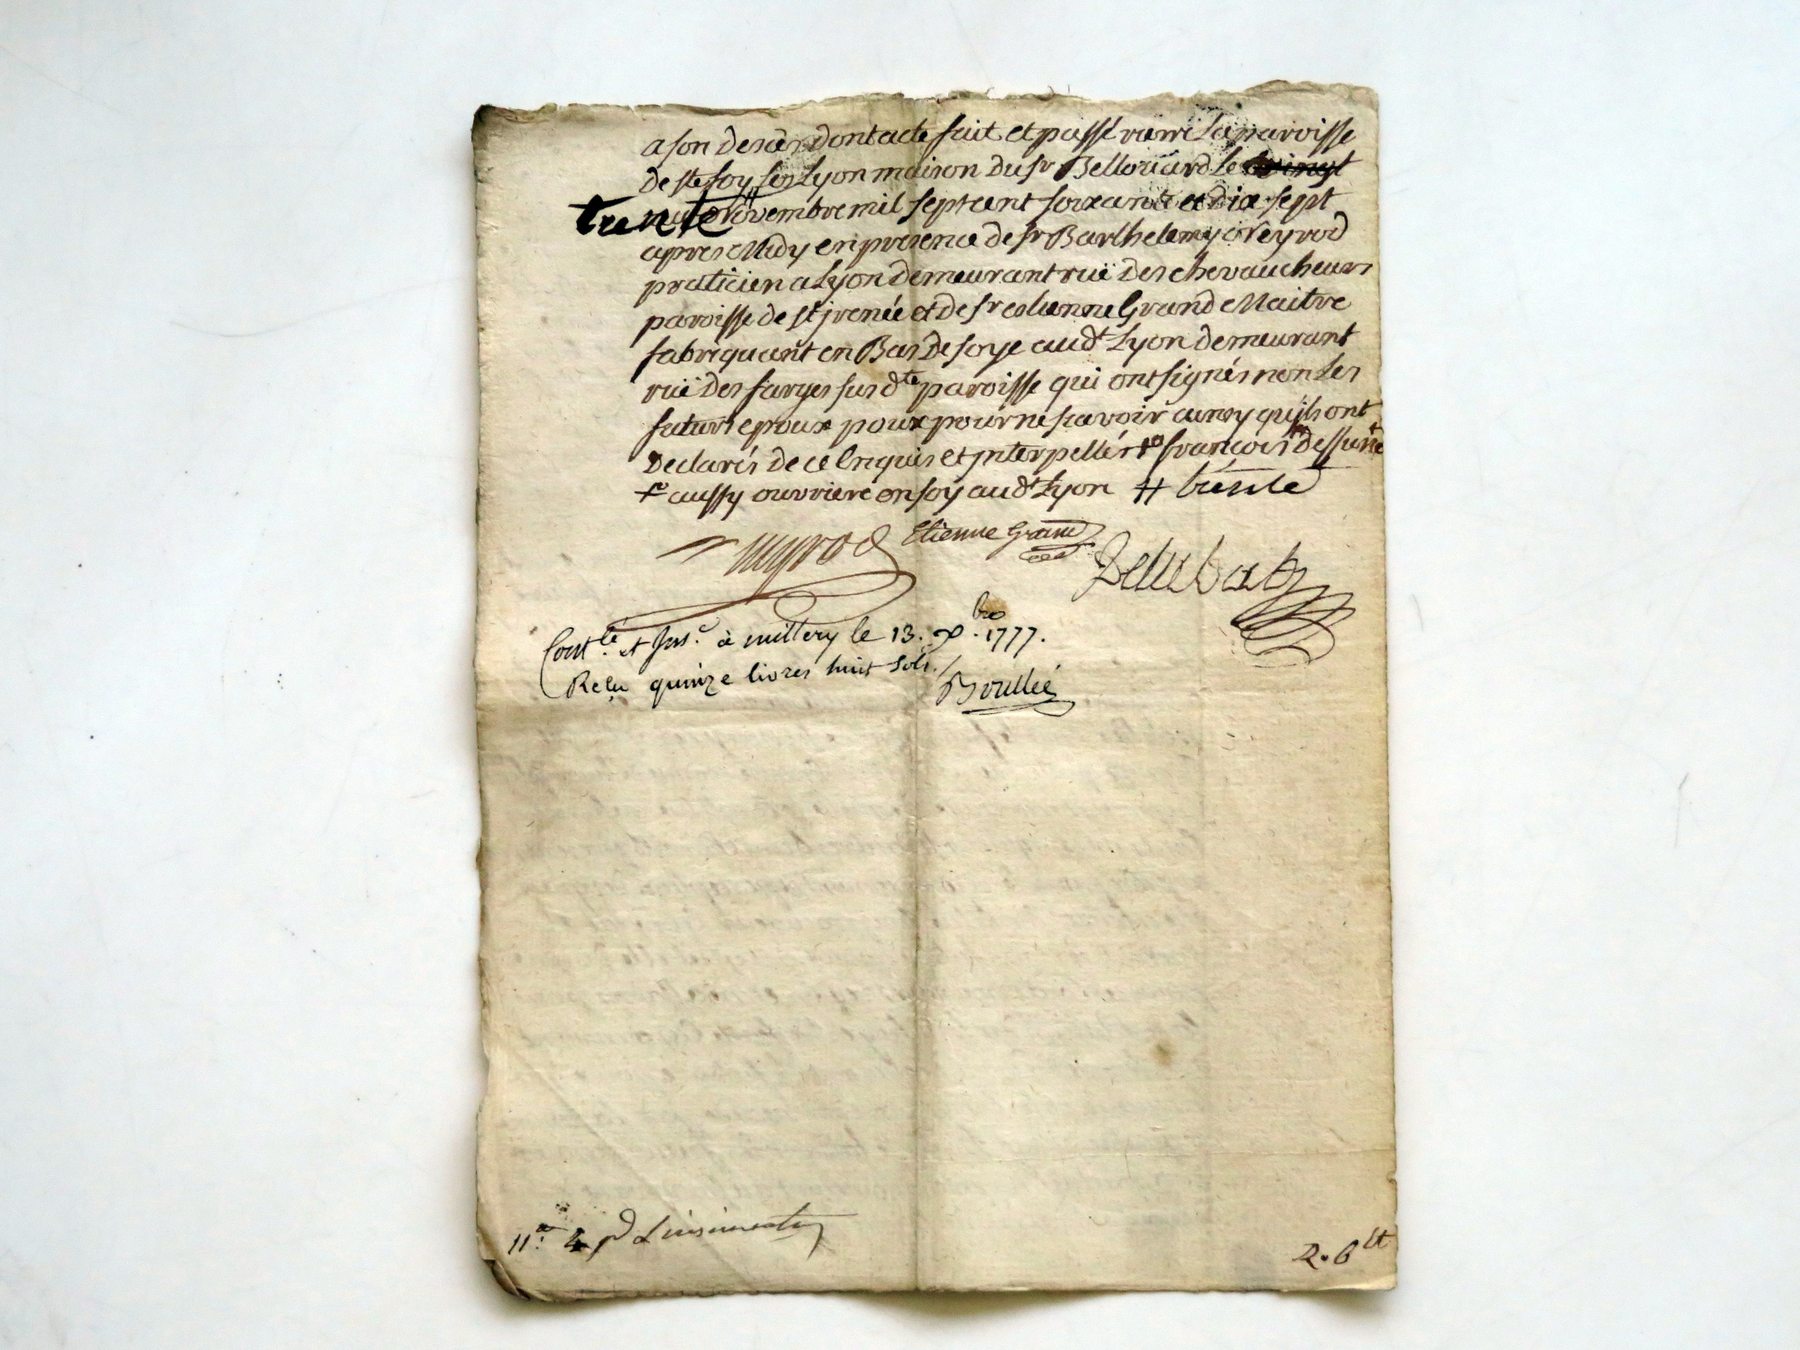 a son deces dont acte fait et passé dans la paroisse
De ste foy les Lyon maison du sr Bellouard le vingt
trente novembre mil sept cent soixante et dix sept
apres Midy en presence de sr Barthelemy Neyrod
praticien a Lyon demeurant ruë des chevaucheurs
paroisse de st jrenée et de sr etienne Grand Maitre
fabriquant en Bas de soye aud.t Lyon demeurant
ruë des farges susd.te paroisse qui ont signés non les
futurs epoux pour ne scavoir
Declarés de ce Enquis et jnterpellés françois
aussy ouvriere en soy aud.t Lyon # trente
Neyrod Etienne Grand
Cont.lé et Jns.é à millery le 13. Xbre 1777.
Reçu quinze livres huit sols.
Boullée
11.
R. 6 lt